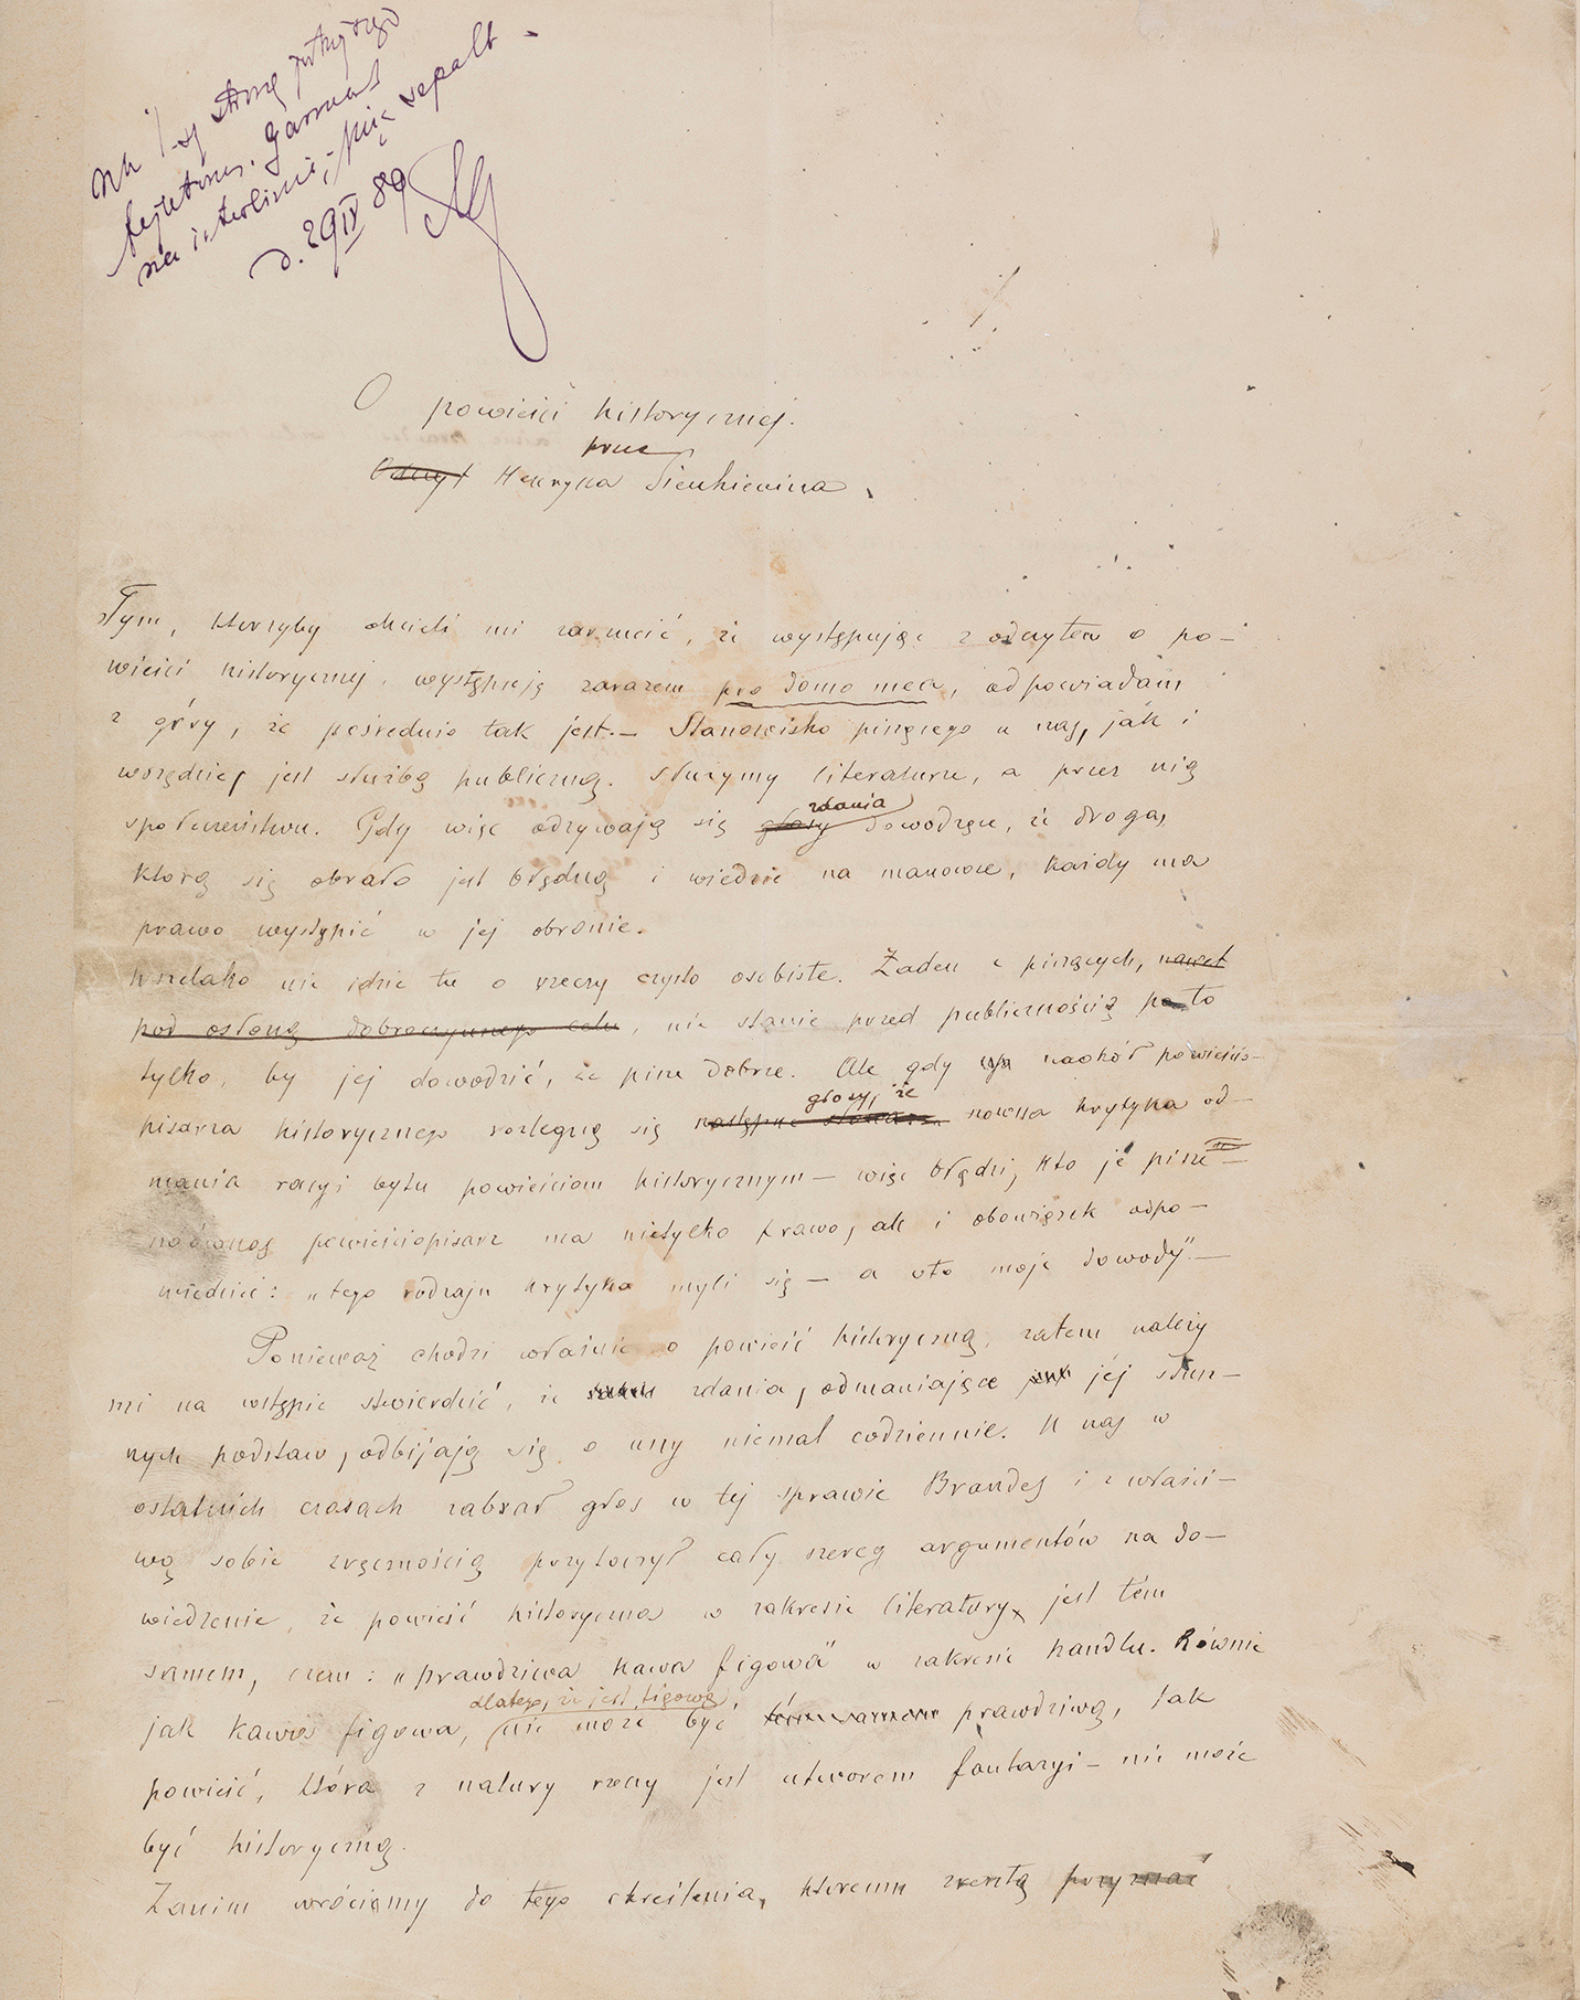 na 1-szą stronę
fejletonu. Garmont
na interlinię,
d. 29 IV 89
O powieści historycznej.
przez
Odczyt Henryka Sienkiewicza.
Tym, którzyby chcieli mi zarzucić, że występując z odczytem o po-
wieści historycznej, występuję zarazem pro domo mea, odpowiadam
z góry, że pośrednio tak jest. — Stanowisko piszącego u nas, jak i
wszędzie, jest służbą publiczną. Służymy literaturze, a przez nią
zdania
społeczeństwu. Gdy więc odzywają się głosy dowodzące, że droga,
którą się obrało jest błędną i wiedzie na manowce, każdy ma
prawo wystąpić w jej obronie.
Wszelako nie idzie tu o rzeczy czysto osobiste. Żaden z piszących, nawet
pod osłoną dobroczynnego celu, nie stanie przed publicznością po to
tylko, by jej dowodzić, że pisze dobrze. Ale gdy naokół powieścio-
głosy, że
pisarza historycznego rozlegną się następne słowa: nowsza krytyka od-
mawia racyi bytu powieściom historycznym — więc błądzi, kto je pisze —
nówczas powieściopisarz ma nietylko prawo, ale i obowiązek odpo-
wiedzieć: „tego rodzaju krytyka myli się — a oto moje dowody". —
Ponieważ chodzi właśnie o powieść historyczną, zatem należy
mi na wstępie stwierdzić, że zdania, odmawiające jej słusz-
nych podstaw, odbijają się o uszy niemal codziennie. U nas w
ostatnich czasach zabrał głos w tej sprawie Brandes i z właści-
wą sobie zręcznością przytoczył cały szereg argumentów na do-
wiedzenie, że powieść historyczna w zakresie literatury jest tém
samem, czem: „prawdziwa kawa figowa" w zakresie handlu. Równie
dlatego, że jest figową,
jak kawa figowa, nie może być tém samem prawdziwą, tak
powieść, która z natury rzeczy jest utworem fantazyi — nie może
być historyczną.
Zanim wrócimy do tego określenia, któremu zresztą przyznać